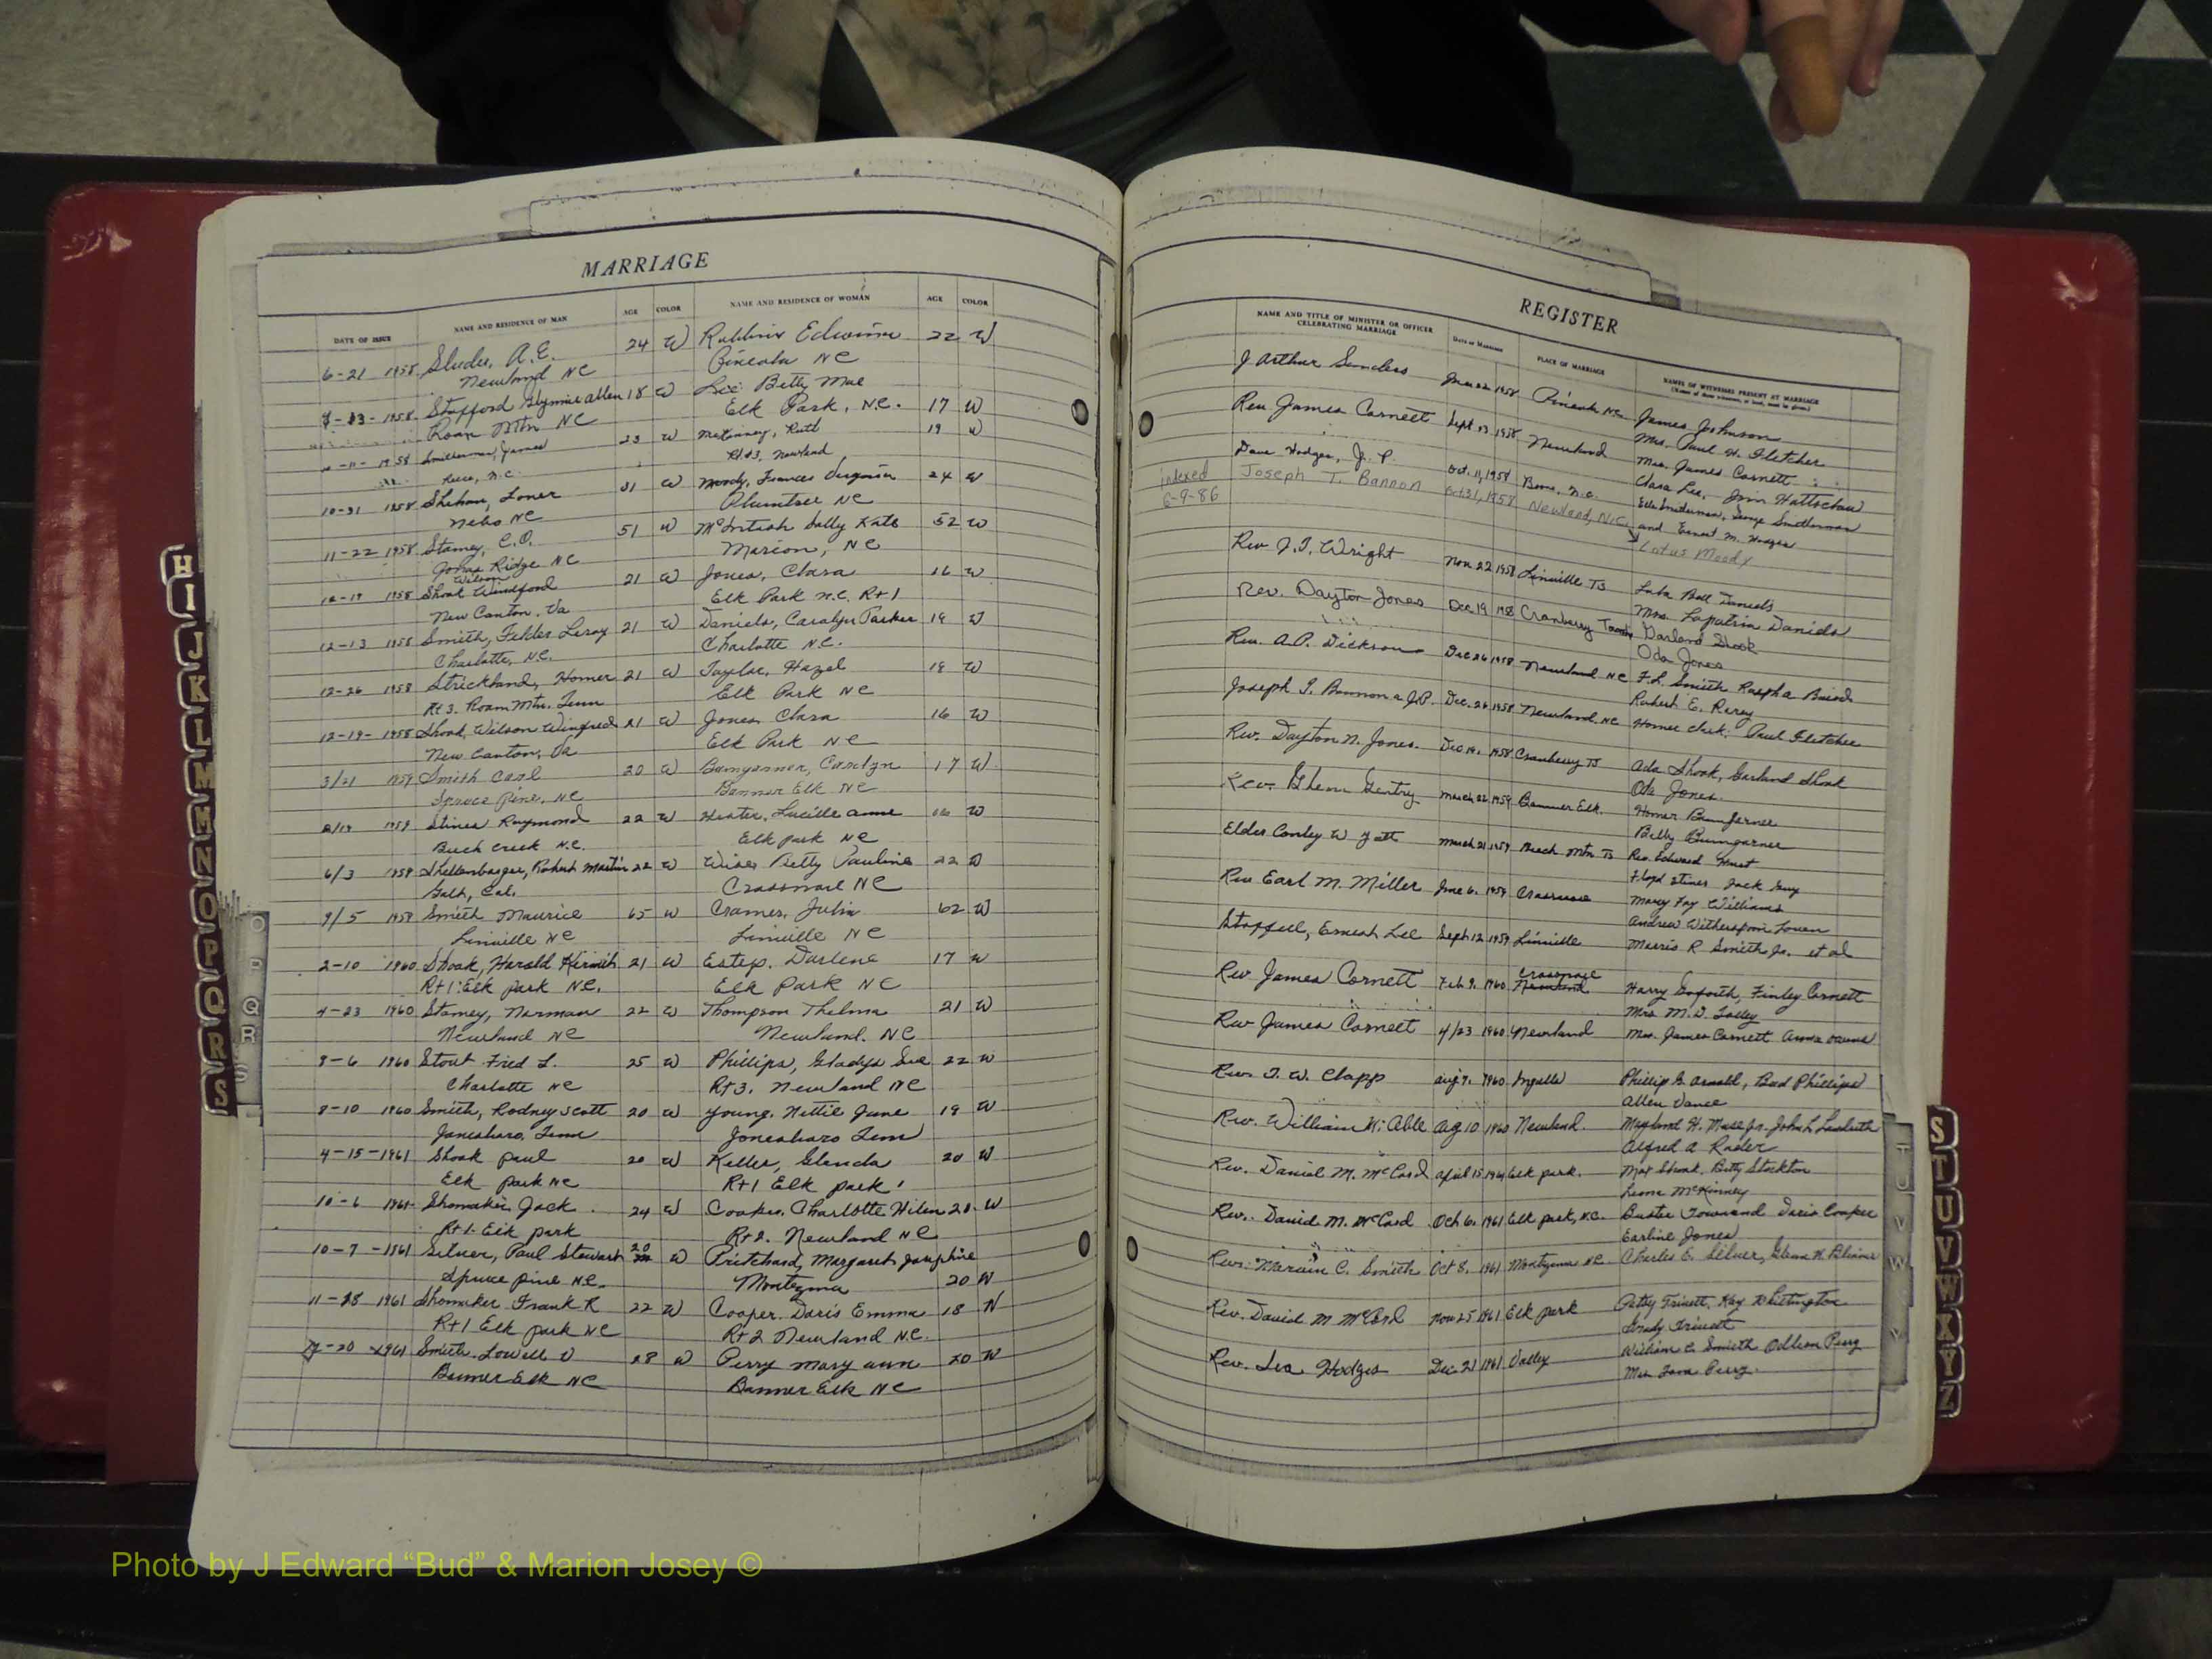 MARRIAGE
DATE OF ISSUE NAME AND RESIDENCE OF MAN AGE COLOR NAME AND RESIDENCE OF WOMAN AGE COLOR
6-21 1958 A.E. 24 W Edwina 22 W
Newland NC Pineola NC
1958 Stafford allen 18 W Lee Betty Mae
Roan Mtn NC Elk Park, N.C. 17 W
1958 James 23 W McKinney, Ruth 19 W
N.C. Rt #3, Newland
10-31 1958 W Moody, Frances 24 W
Nebo NC Plumtree NC
11-22 1958 Stamey, C.O. 51 W Sally Kate 52 W
Jonas Ridge NC Marion, NC
Wilson
12-19 1958 Shook Windford 21 W Jones, Clara 16 W
New Canton, Va Elk Park N.C. Rt 1
12-13 1958 Smith, Felder Leroy 21 W Daniels, Carolyn Parker W
Charlotte, N.C. Charlotte N.C.
12-26 1958 Strickland, Homer 21 W Taylor, Hazel 18 W
Rt 3. Roan Mtn. Tenn Elk Park NC
12-19- 1958 Shook, Wilson Winfred 21 W Jones Clara 16 W
New Canton, Va Elk Park NC
3/21 1959 Smith Carl 20 W Bumgarner, Carolyn 17 W
Spruce Pine, NC Banner Elk NC
1959 Stines Raymond 22 W Lucille anne 16 W
Buck Creek N.C. Elk park NC
6/3 1959 Shellenbarger, Robert Martin 22 W Wise Betty Pauline 22 W
Galt, Cal. Crossnore NC
9/5 1959 Smith Maurice 65 W Cramer, Julia 62 W
Linville NC Linville NC
2-10 1960 Shook, Harold 21 W Estep, Darlene 17 W
Rt 1 Elk park NC. Elk Park NC
4-23 1960 Stamey, Norman 22 W Thompson Thelma 21 W
Newland NC Newland. NC
8-6 1960 Stout Fred L. 25 W Phillips, Gladys Sue 22 W
Charlotte NC Rt 3. Newland NC
8-10 1960 Smith, Rodney Scott 20 W Young, Nettie June 19 W
Jonesboro, Tenn Jonesboro Tenn
4-15-1961 Shook paul 20 W Keller, Glenda 20 W
Elk park NC Rt 1 Elk park
10-6 1961 Shomaker Jack 24 W Cooper, Charlotte 20 W
Rt 1. Elk park Rt 2. Newland NC
10-7-1961 Silver, Paul Stewart 20 W Pritchard, Margaret Josephine
Spruce pine NC Montezuma 20 W
11-18 1961 Shomaker Frank R 22 W Cooper Doris Emma 18 W
Rt 1 Elk park NC Rt 2 Newland N.C.
1961 Smith Lowell 28 W Perry Mary ann 20 W
Banner Elk NC Banner Elk NC
REGISTER
NAME AND TITLE OF MINISTER OR OFFICER CELEBRATING MARRIAGE DATE OF MARRIAGE PLACE OF MARRIAGE NAMES OF WITNESSES PRESENT AT MARRIAGE
J Arthur Sanders 1958 Pineola NC James Johnson
Mrs. Paul H. Fletcher
Rev James Cornett Sept 13 1958 Newland Mrs. James Cornett
Clara Lee,
Dave Hodges, J. P. Oct. 11, 1958 Boone, N.C.
and Ernest M. Hodges
indexed Joseph T. Bannon Newland, N.C. Lotus Moody
6-9-86
Rev J.T. Wright Nov 22 1958 Linville TS Ball Daniels
Mrs. Daniels
Rev. Dayton Jones Dec 19 1958 Cranberry Garland Shook
Oda Jones
Rev. A.P. Dickson Dec 26 1958 Newland NC F.L. Smith Ralph
Robert E.
Joseph T. Bannon J.P. Dec. 26 1958 Newland NC Homer Paul Fletcher
Rev. Dayton N. Jones. Dec 19. 1958 Cranberry TS Ada Shook, Garland Shook
Oda Jones.
Rev. Glenn Gentry March 22 1959 Banner Elk. Homer Bumgarner
Betty Bumgarner
Elder Conley W March 21 1959 Beach Mtn TS Rev. Edward
Floyd Stines Jack Guy
Rev Earl M. Miller June 6. 1959 Crossnore Mary Fay Williams
Andrew Witherspoon
Ernest Lee Sept 12 1959 Linville Morris R Smith Jr. et al
Crossnore
Rev James Cornett Feb 9. 1960 Newland Harry Goforth, Finley Cornett
Mrs M.D.
Rev James Cornett 4/23 1960 Newland Mrs. James Cornett
Rev. T. W. Clapp aug 7. 1960 Ingalls Phillip G Arnold, Bud Phillips
Allen Vance
Rev. William Able Aug 10 1960 Newland. John L
Alfred A
Rev. Daniel M. McCord april 15 1961 Elk park. Shook, Betty Stockton
McKinney
Rev. David M. McCord Oct 6. 1961 Elk park, N.C. Buster Townsend Doris Cooper
Earline Jones
Rev. Marvin C. Smith Oct 8. 1961 Montezuma NC Charles E. Silver,
Rev. David M McCord Nov 25 1961 Elk park Patsy Trivett, Kay Whittington
Grady Trivett
Rev. Hodges Dec 21 1961 Valley William C Smith Perry
Mrs Perry
H
I
J
K
L
M
M
N
O
P
Q
R
S
O
P
Q
R
S
S
T
U
V
W
X
Y
Z
T
U
V
W
Y
Photo by J Edward “Bud” & Marion Josey ©